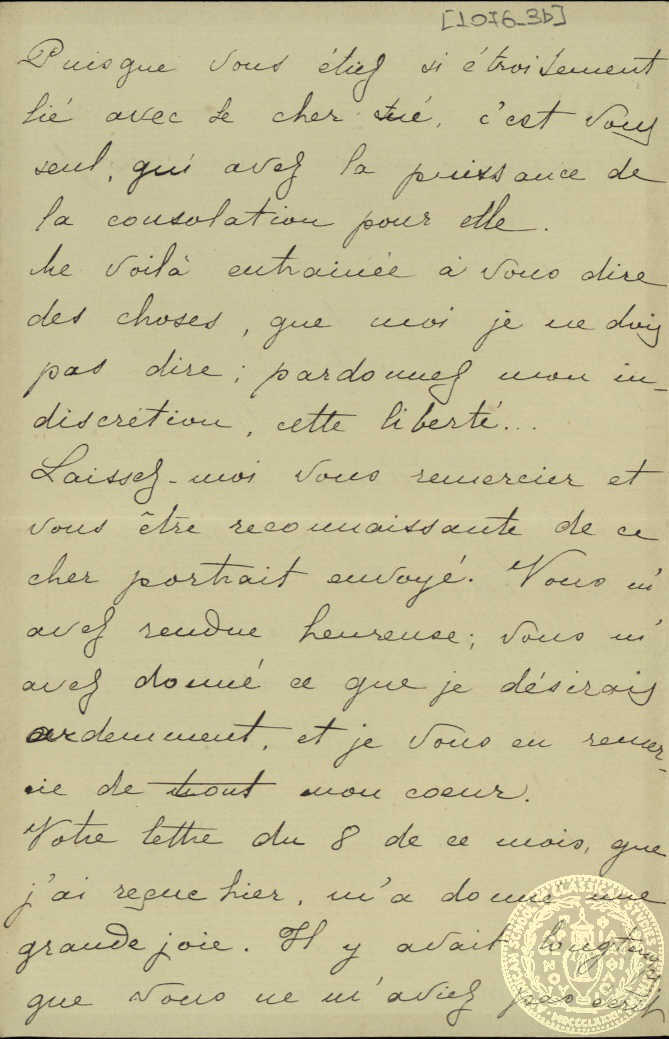 [1076_3b]
Puisque vous étiez si étroitement
lié avec le cher tué, c'est vous
seul, qui avez la puissance de
la consolation pour elle.
Me voilà entrainée à vous dire
des choses, que moi je ne dois
pas dire; pardonnez mon in-
discrétion, cette liberté...
Laissez-moi vous remercier et
vous être reconnaissante de ce
cher portrait envoyé. Vous m'
avez rendue heureuse; vous m'
avez donné ce que je désirais
ardemment, et je vous en remer-
cie de tout mon coeur.
Votre lettre du 8 de ce mois, que
j'ai reçue hier, m'a donné une
grande joie. Il y avait longtemps
que vous ne m'aviez pas écrit,